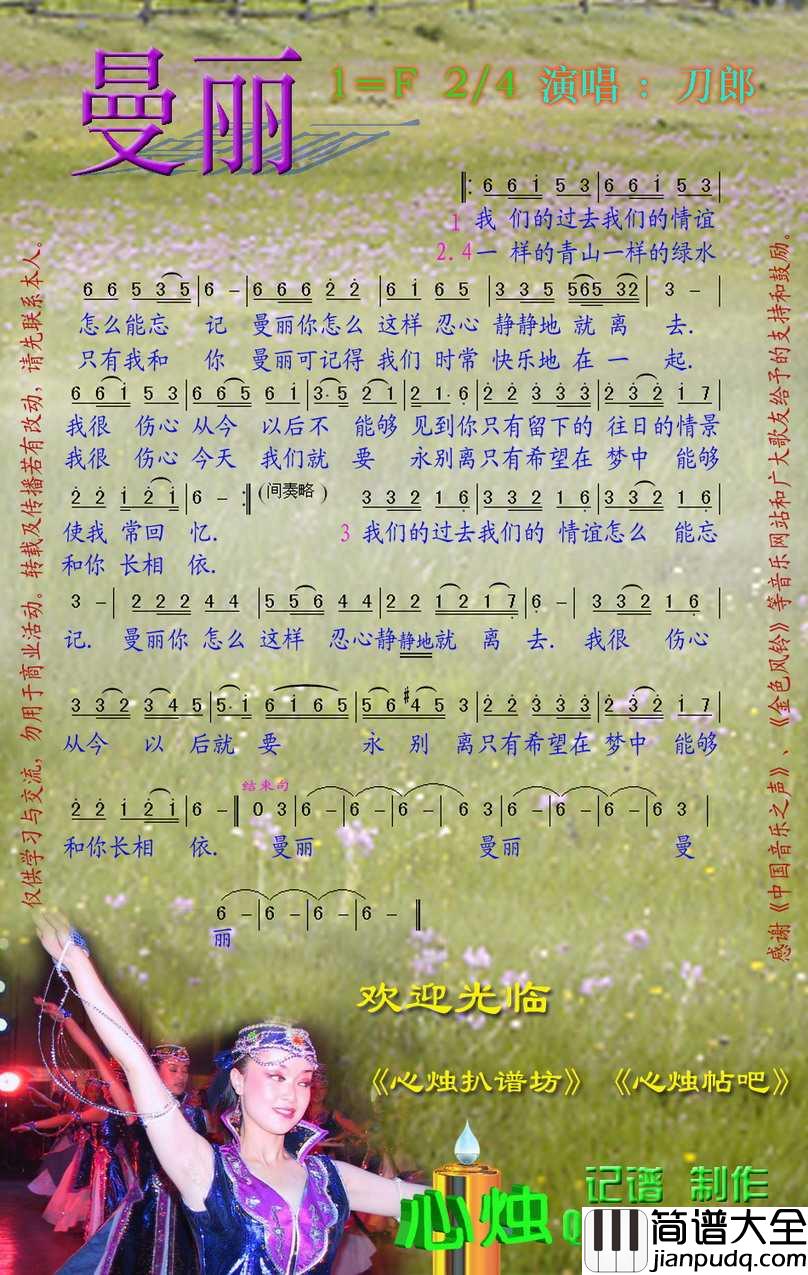 曼丽
1=F 2/4 演唱：刀郎
6 6 i 5 3 | 6 6 i 5 3 |
1 我 们的过去我们的情谊
2.4一 样的青山一样的绿水
6 6 5 3 5 | 6 - | 6 6 6 2 2 | 6 i 6 5 | 3 3 5 565 32 | 3 - |
怎么能忘 记 曼丽你怎么 这样 忍心 静静地 就 离 去.
只有我和 你 曼丽可记得 我们 时常 快乐地 在 一 起.
6 6 i 5 3 | 6 6 5 6 i | 3· 5 2 1 | 2 1· 6 | 2 2 3 3 3 | 2 3 2 i 7 |
我很 伤心 从今 以后不 能够 见到你只有留下的 往日的情景
我很 伤心 今天 我们就 要 永别离只有希望在 梦中 能够
2 2 i 2 i | 6 - :| (间奏略) 3 3 2 1 6 | 3 3 2 1 6 | 3 3 2 1 6 |
使我 常回 忆. 3 我们的过去我们的 情谊怎么 能忘
和你 长相 依.
3 - | 2 2 2 4 4 | 5 5 6 4 4 | 2 2 1 2 1 7 | 6 - | 3 3 2 1 6 |
记. 曼丽你 怎么 这样 忍心静静地就 离 去. 我很 伤心
3 3 2 3 4 5 | 5· i | 6 i 6 5 | 5 6 #4 5 3 | 2 2 3 3 3 | 2 3 2 i 7 |
从今 以 后就 要 永 别 离只有希望在 梦中 能够
2 2 i 2 i | 6 - || 0 3 | 6 - | 6 - | 6 3 | 6 - | 6 - | 6 3 |
结束句
和你长相 依. 曼丽 曼丽 曼
6 - | 6 - | 6 - | 6 - ||
丽
仅供学习与交流，勿用于商业活动。转载及传播若有改动，请先联系本人。
感谢《中国音乐之声》、《金色风铃》等音乐网站和广大歌友给予的支持和鼓励。
欢迎光临
《心烛扒谱坊》《心烛帖吧》
记谱 制作
心烛
简谱大全
jianpudq.com